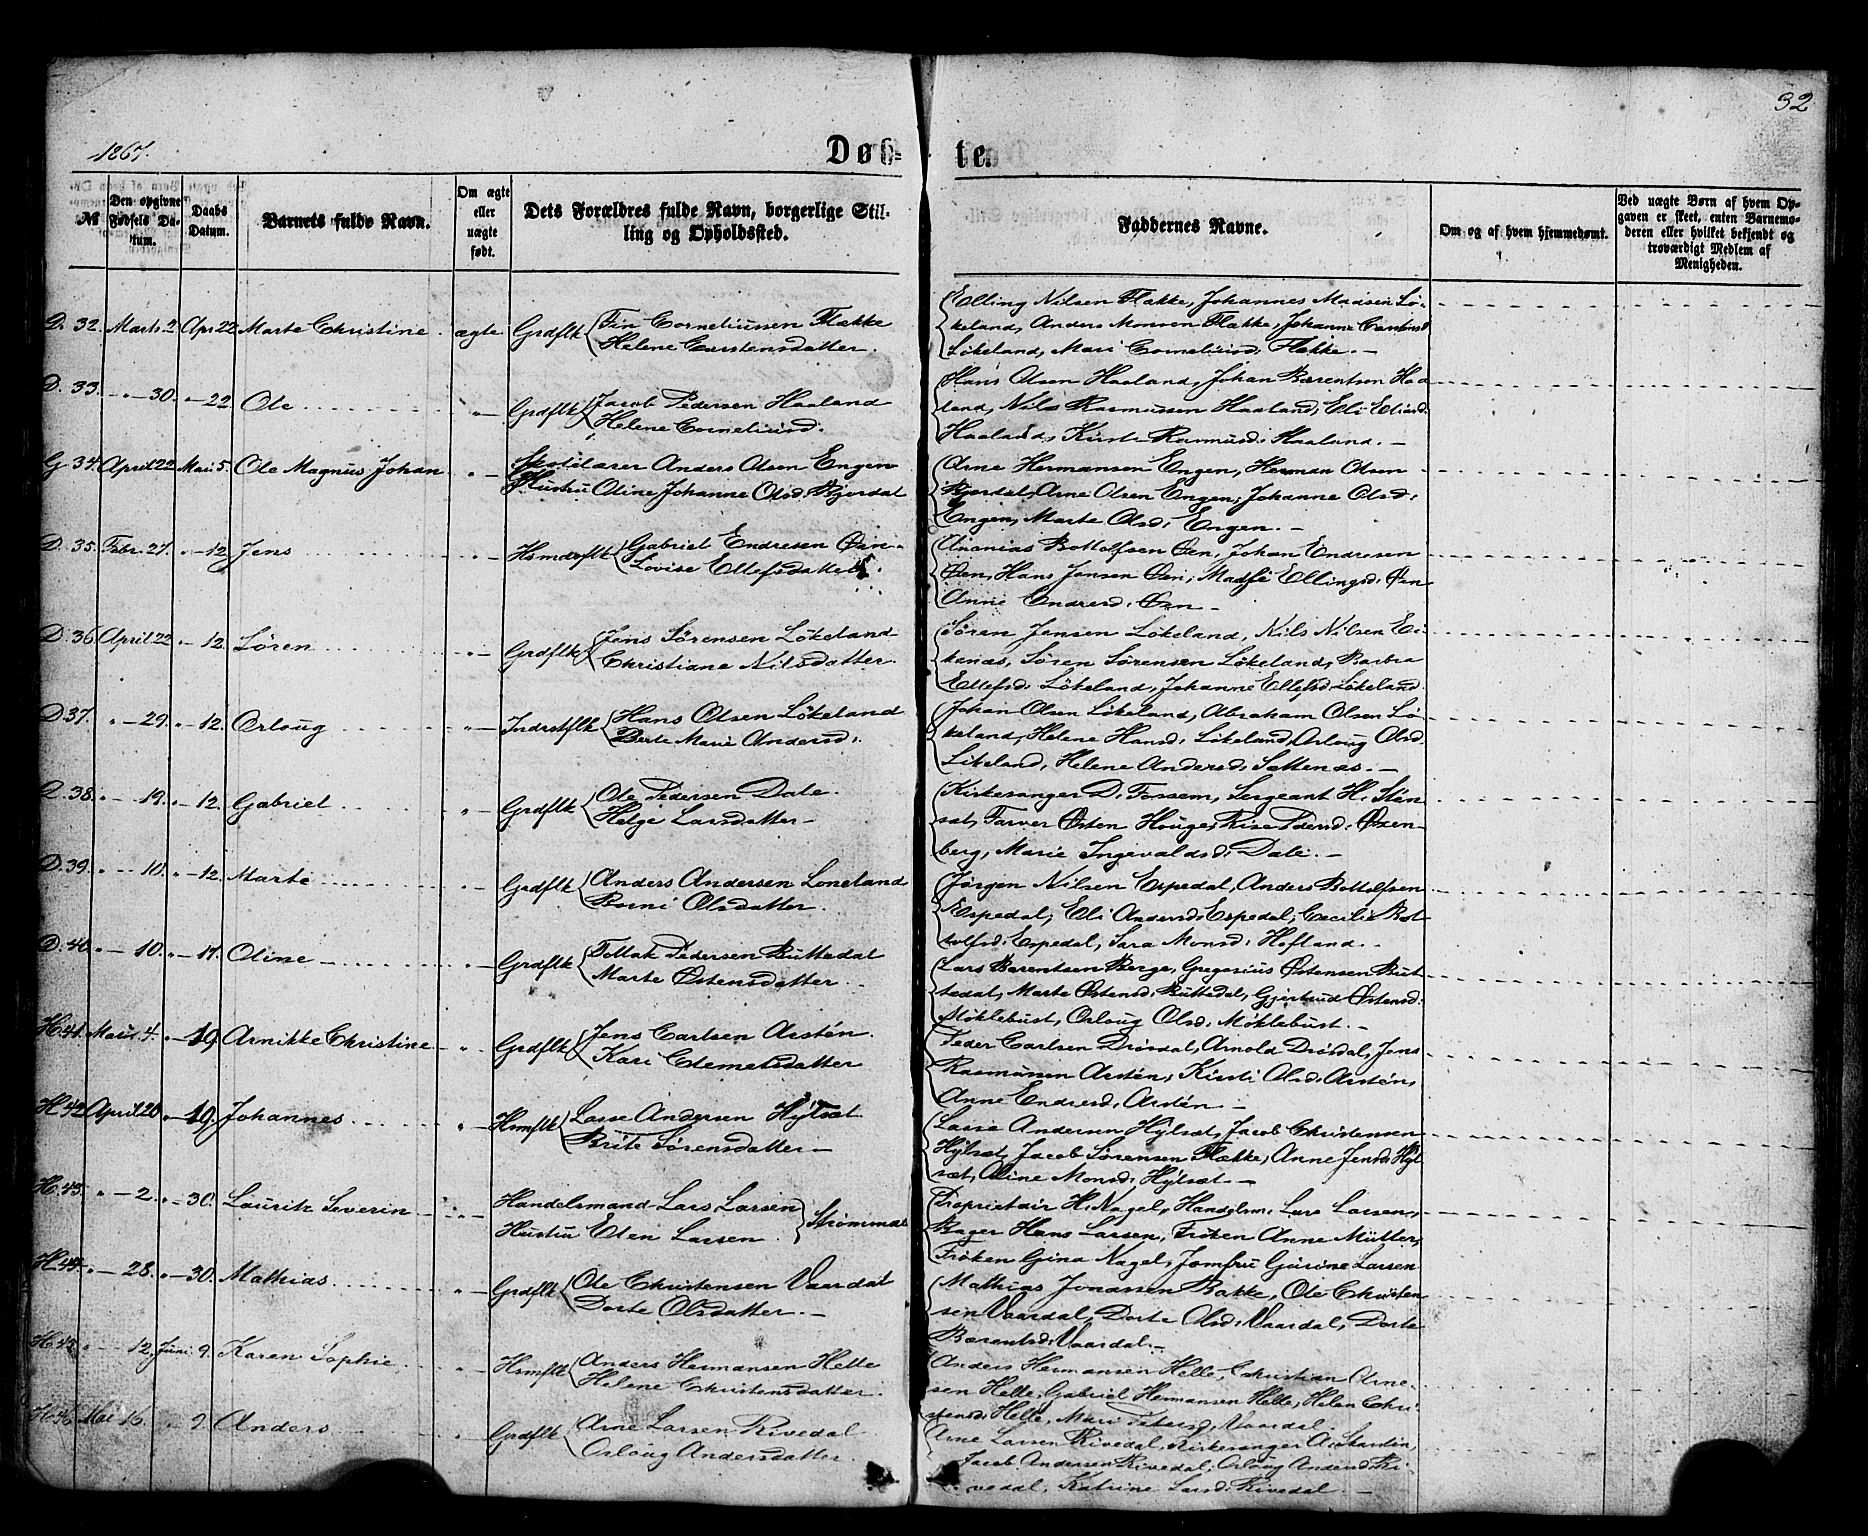 32
1867.
Døb=
te.
№
Den opgivne Fødsels Datum.
Daabs Datum.
Barnets fulde Navn.
Om ægte eller uægte født.
Dets Forældres fulde Navn, borgerlige Stilling og Opholdssted.
Faddernes Navne.
Om og af hvem hjemmedøbt.
Ved uægte Børn af hvem Opgaven er skeet, enten Barnemoderen eller hvilket bekjendt og troværdigt Medlem af Menigheden.
D. 32. Marts 2 Apr 22 Marte Christine. ægte Grdflk Fin Corneliussen Flække
Helene Carstensdatter.
Elling Nilsen Flække, Johannes Madsen Lø-
keland, Anders Monsen Flække, Johanne
Løkeland, Mari Corneliusd: Flække. —
D. 33. - " - 30. " - 22 Ole " - Grdflk Jacob Pedersen Haaland
Helene Corneliusd.
Hans Olsen Haaland, Johan Berentsen Haa
land, Nils Rasmussen Haaland, Eli
Haaland, Kirst. Rasmusd: Haaland. —
G 34. April 22 Mai 5. Ole Magnus Johan " - Skolelærer Anders Olsen Engen
Hustru Oline Johanne Olsd. Bjordal
Arne Hermansen Engen, Herman Olsen
Bjordal, Arne Olsen Engen, Johanne Olsd:
Engen, Marte Olsd: Engen. —
D. 35. Febr. 27. " - 12. Jens " - Hsmdsflk Gabriel Endresen Øen.
Lovise Ellefsdatter.
Ananias Bottolfsen Øen, Johan Endresen
Øen, Hans Jensen Øen, Madsi Ellingsd: Øen
Anne Endresd: Øen —
D. 36. April 22 " - 12. Søren " - Grdflk Jens Sørensen Løkeland
Christiane Nilsdatter.
Søren Jensen Løkeland, Nils Nilsen Ei-
kenæs, Søren Sørensen Løkeland, Barbra
Ellefsd: Løkeland, Johanne Ellefsd. Løkeland.
D 37. " - 29. " - 12. Orloug " - Indrstflk Hans Olsen Løkeland
Berte Marie Andersd:
Johan Olsen Løkeland, Abraham Olsen Lø-
keland, Helene Hansd: Løkeland, Orloug Olsd.
Løkeland, Helene Andersd: Sættenæs. —
D. 38. " - 19. " - 12. Gabriel " - Grdflk Ole Pedersen Dale.
Helge Larsdatter —
Kirkesanger D. Fossem, Sergeant H. Sten-
sæt, Farver Østen Houge,
berg, Marie Ingevaldsd: Dale. —
D. 39. " - 10. " - 12. Marte " - Grdflk Anders Andersen Loneland
Borni Olsdatter.
Jørgen Nilsen Espedal, Anders Bottolfsen
Espedal, Eli Andersd: Espedal, Cecilie Bot
tolfsd: Espedal, Sara Monsd: Hofland. -
D. 40. " - 10. " - 17. Oline " - Grdflk Tollak Pedersen Buttedal
Marte Østensdatter.
Lars Berentsen Berge, Gregorius Østensen But
tedal, Marte Østensd: Buttedal, Gjertrud Østensd:
Møklebust, Orloug Olsd: Møklebust. —
H. 41. Mai 4. " - 19. Arnikke Christine " - Grdflk Jens Carlsen Arstén.
Kari Clemetsdatter
Peder Carlsen Drøsdal, Arnold Drøsdal, Jens
Rasmussen Arstén, Kirsti Olsd: Arstén,
Anne Endresd: Arstén —
H. 42 April 20 " - 19. Johannes " Hsmflk Lasse Andersen Hylsæt
Brite Sørensdatter —
Lasse Andersen Hylsæt, Jacob Christensen
Hylsæt, Jacob Sørensen Flække, Anne Jensd: Hyl
sæt, Oline Monsd: Hylsæt —
H. 43. " - 2. " - 30. Lauritz Severin " - Handelsmand Lars Larsen
Hustru Elen Larsen. Strømmen
Proprietair H. Nagel, Handelsm: Lars Larsen,
Bager Hans Larsen, Frøken Anne Müller,
Frøken Gina Nagel, Jomfru Gurine Larsen
H. 44. " - 28. " - 30. Mathias " - Grdflk Ole Christensen Vaardal
Dorte Olsdatter. —
Mathias Jonassen Bakke, Ole Christen
sen Vaardal, Dorte Olsd: Vaardal, Dorte
Berentsd: Vaardal. —
H. 45. " - 12. Juni 9. Karen Sophie " - Hsmflk Anders Hermansen Helle
Helene Christensdatter.
Anders Hermansen Helle, Christian Arne-
sen Helle, Gabriel Hermansen Helle, Helen Chri
stensd: Helle, Mari Petersd: Vaardal
H. 46. Mai 16. " 9. Anders " Grdflk Arne Larsen Rivedal
Orloug Andersdatter.
Arne Larsen Rivedal, Kirkesanger A.
Jacob Andersen Rivedal, Orloug Andersd: Ri-
vedal, Katrine Larsd: Rivedal. —